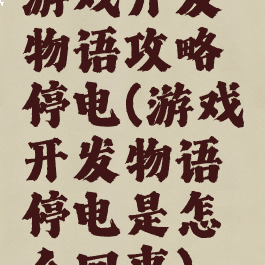 游戏开发
物语攻略
停电(游戏
开发物语
停电是怎
么回事)